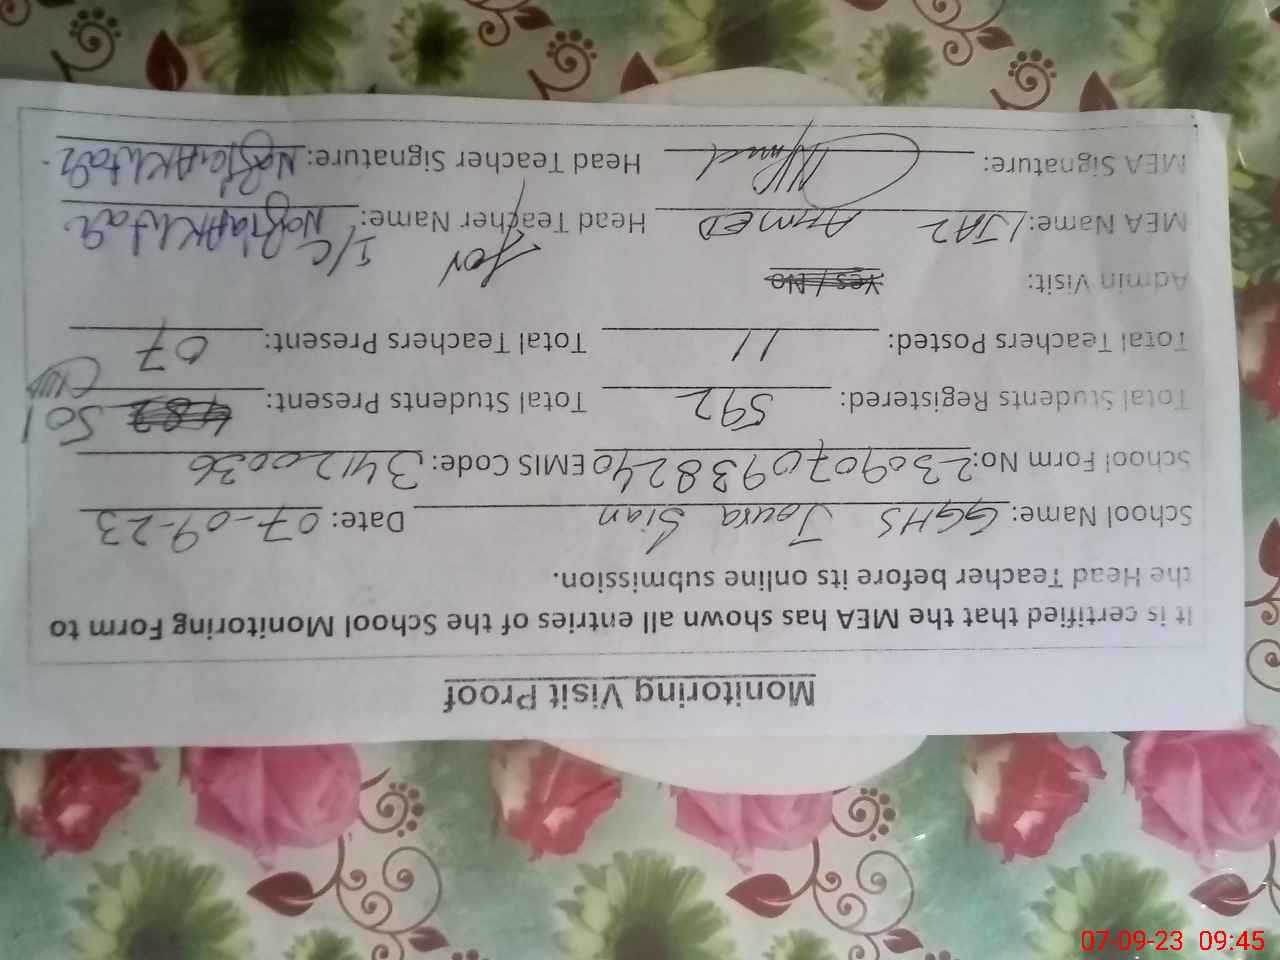 Monitoring Visit Proof
It is certified that the MEA has shown all entries of the School Monitoring Form to
the Head Teacher before its online submission.
School Name: GGHS Joura Sian Date: 07-09-23
School Form No: 230907093824 EMIS Code: 34120036
Total Students Registered: 592 Total Students Present: 501
Total Teachers Posted: 11 Total Teachers Present: 07
Admin Visit: Yes / No
for I/C
MEA Name: IJAZ AHMED Head Teacher Name: Nazia Akhtar
MEA Signature: Head Teacher Signature: Nazia Akhtar
07-09-23 09:45